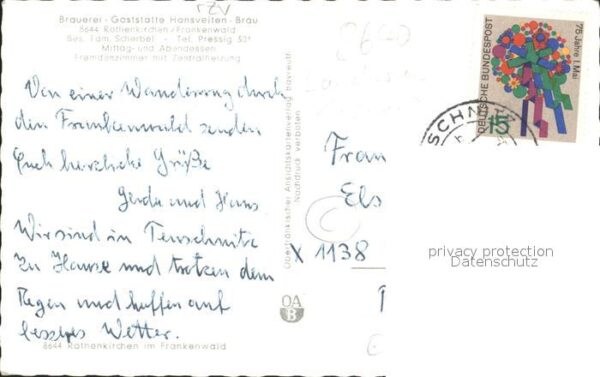 Brauerei - Gaststätte Hansveiten - Bräu
8644 Rothenkirchen/Frankenwald
Bes. Fam. Scherbel - Tel. Pressig 531
Mittag- und Abendessen
Fremdenzimmer mit Zentralheizung
Von einer Wanderung durch
den Frankenwald senden
Euch herzliche Grüße
Gerda und Hans
Wir sind in Teuschnitz
zu Hause und trotzen dem
Regen und hoffen auf
besseres Wetter.
8644 Rothenkirchen im Frankenwald
Oberfränkischer Ansichtskartenverlag bayreuth
Nachdruck verboten
OA
B
Frau
Els
X 1138
DEUTSCHE BUNDESPOST
75 Jahre 1. Mai
15
SCHN
privacy protection
Datenschutz